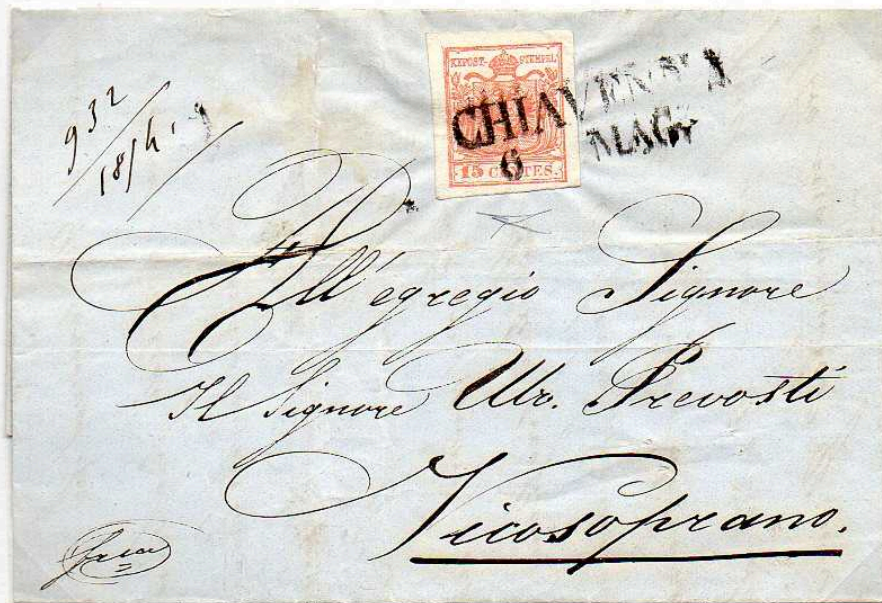 932
18/4.
KKPOST-STEMPEL
15 CENTES.
CHIAVENNA
6 MAGG
All'egregio Signore
Il Signore Ulr. Prevosti
Vicosoprano.